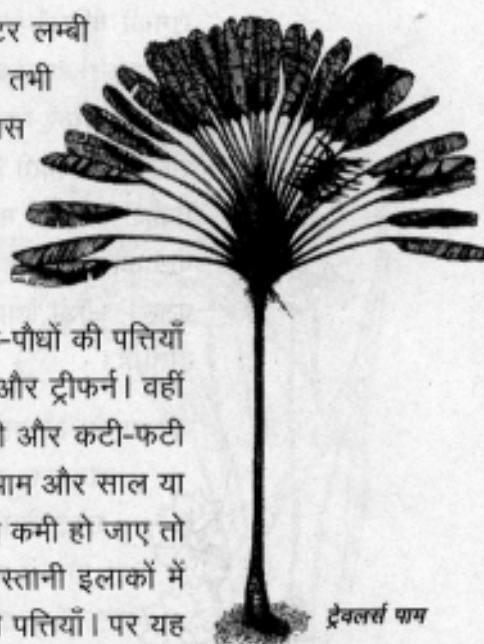 लम्बी
तभी
-पौधों की पत्तियाँ
और ट्रीफर्न। वहीं
और कटी-फटी
और साल या
कमी हो जाए तो
इलाकों में
पत्तियाँ। पर यह
ट्रेवलर्स पाम